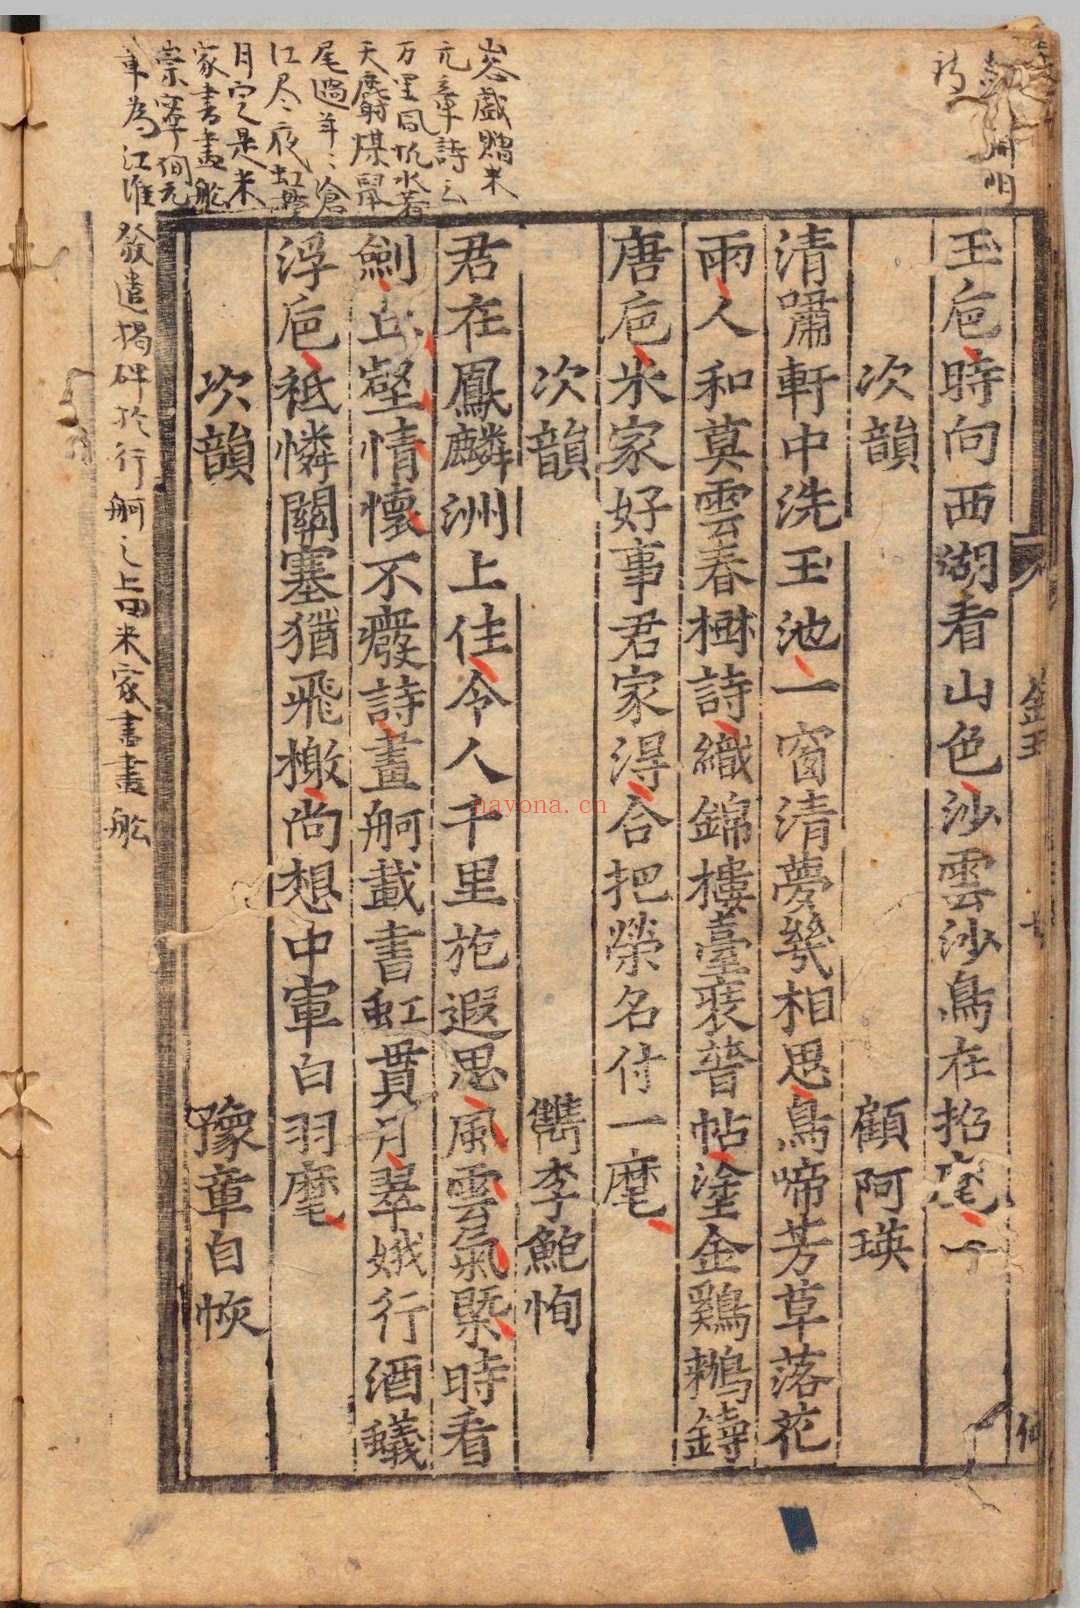 玉巵時向西湖看山色沙雲沙鳥在招麾一
次韻　顧阿瑛
清嘯軒中洗玉池一窗清夢幾相思鳥啼芳草落花
雨人和莫雲春樹詩織錦樓臺裘晉帖塗金鷄鶒鑄
唐巵米家好事君家得合把榮名付一麾
次韻　檇李鮑恂
君在鳳麟洲上住令人千里於遐思風雲氣槩時看
劍丘壑情懷不癈詩畫舸載書虹貫月翠娥行酒蟻
浮巵祗憐關塞猶飛檄尚想中軍白羽麾
次韻　豫章自恢
戲贈米
元章詩云
万里風帆水著
天麝煤鼠
尾過年〻滄
江尽夜虹貫
月定是米
家書畫舩
崇寧間元
章為江淮發運揭碑於行舸之上曰米家書畫舩
nayona.cn